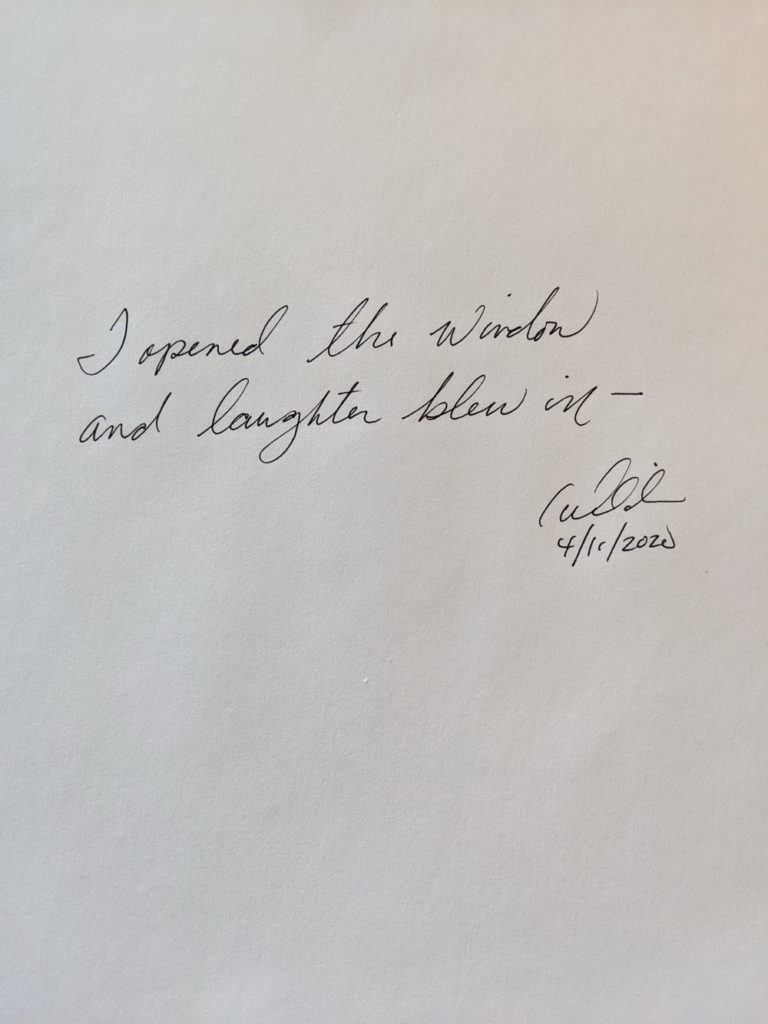 I opened the window
and laughter blew in —
4/11/2020